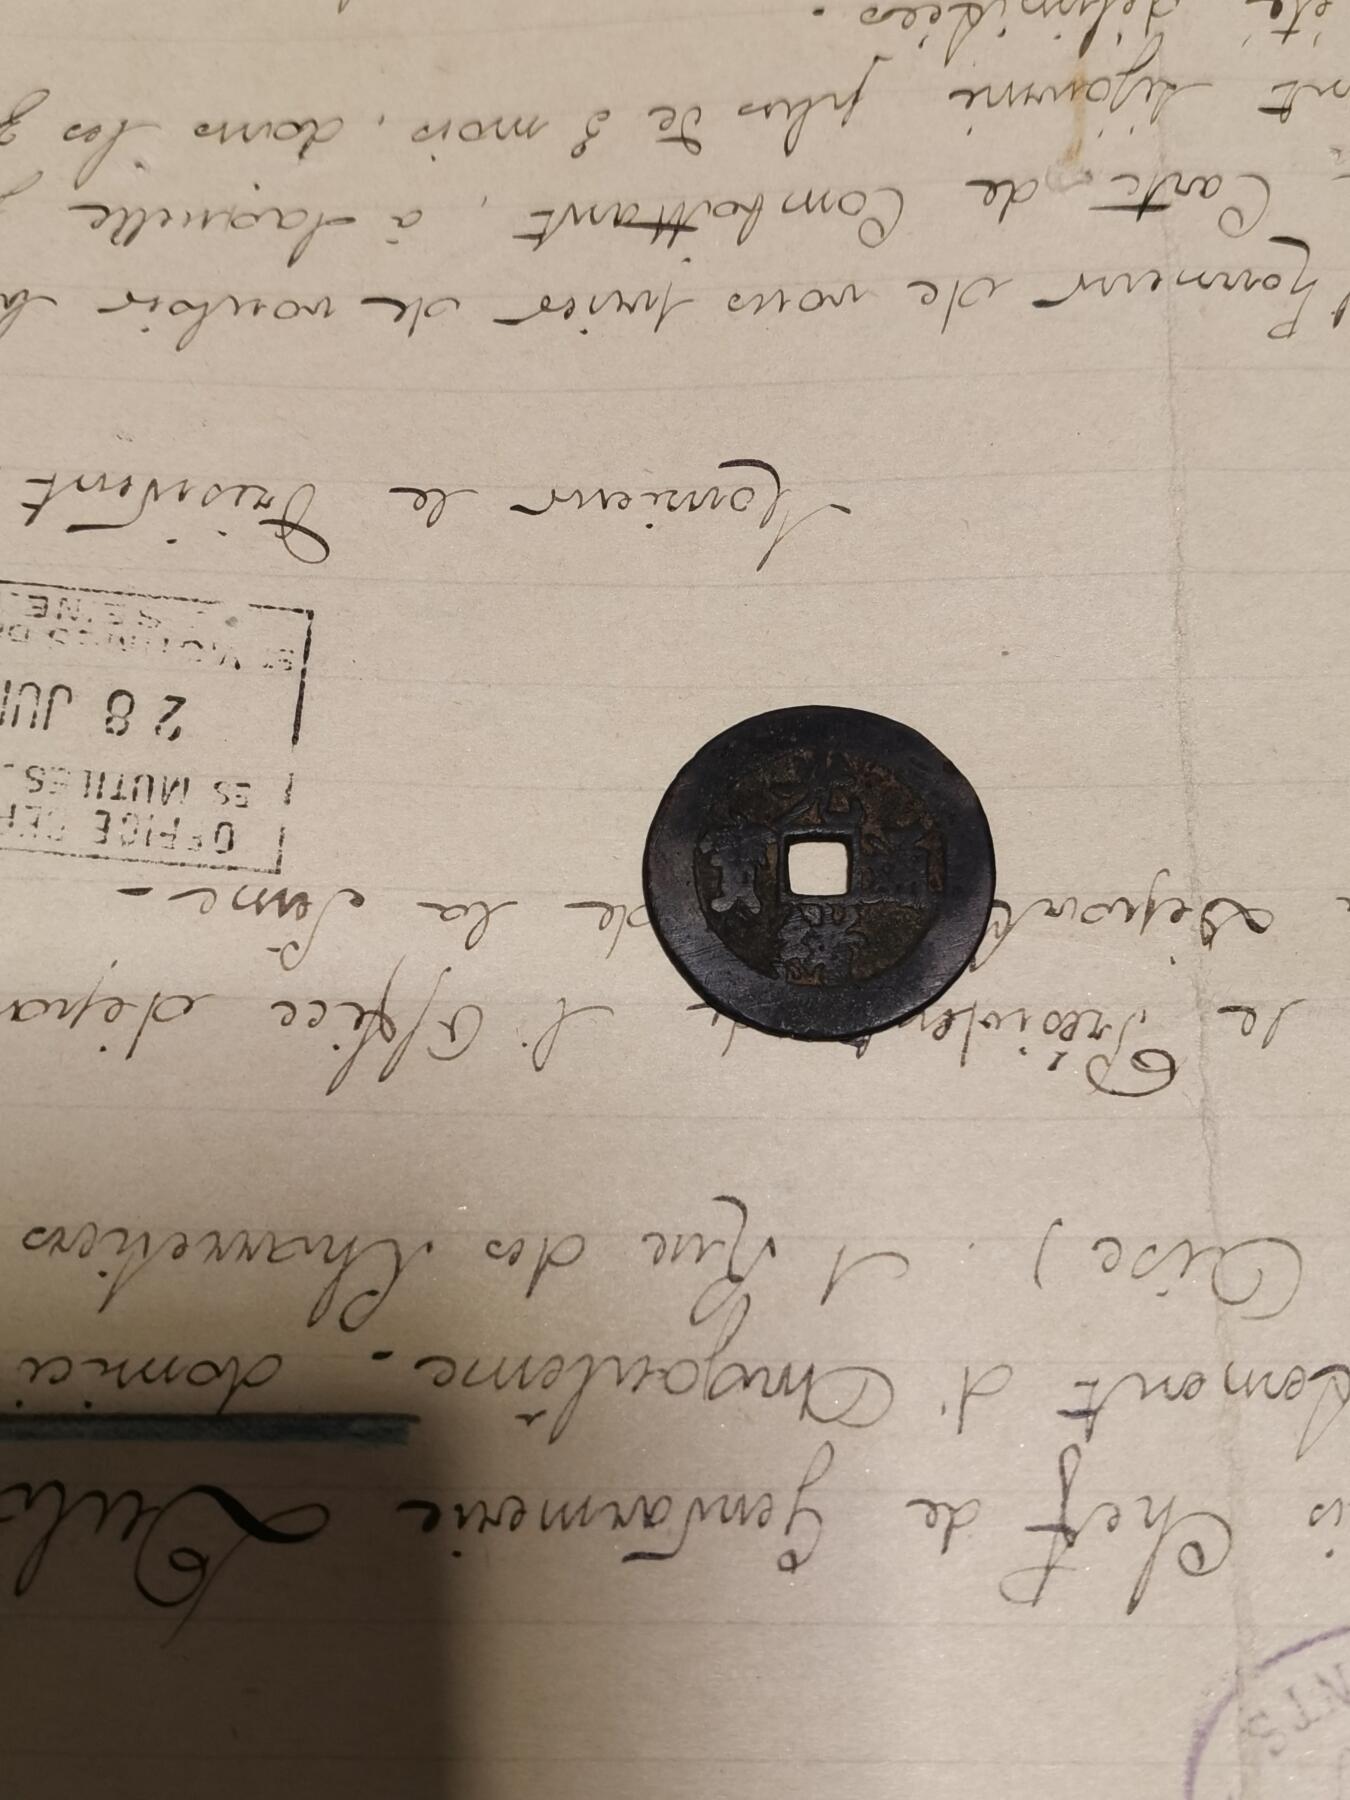 NTS
is Chef de Gendarmerie Dub
dement d'Angoulême - domici
Oise). 1 Rue des Charretiers
le Président de l'Office dépar
de la Seine -
OFFICE DEP
ES MUTILES
28 JUI
ET VICTIMES DE
SEINE
Monsieur le Président
l'honneur de vous prier de vouloir
Carte de Combattant, à laquelle j
nt séjourné plus de 3 mois, dans les
été délimitées.
光緒通寶